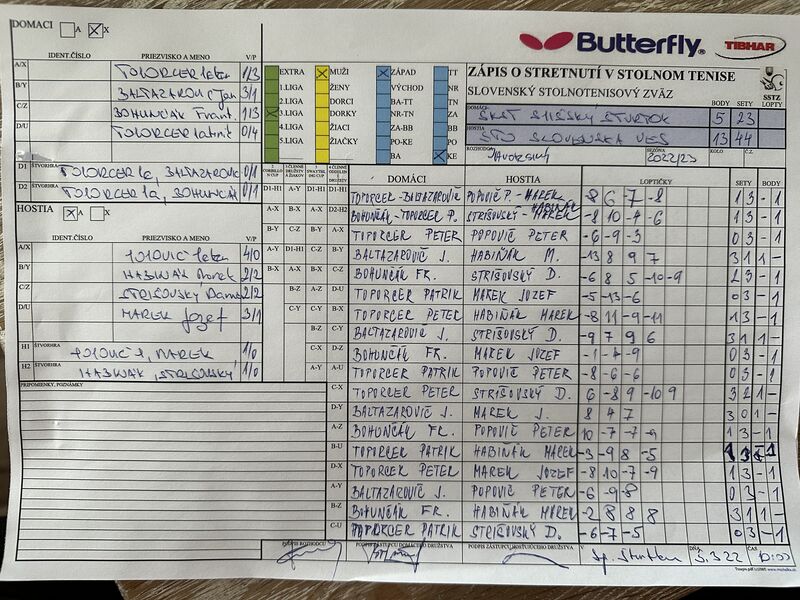 DOMACI A X
IDENT.ČÍSLO PRIEZVISKO A MENO V/P
A/X TOPORCER Peter 1/3
B/Y BALTAZAROVIČ Jan 3/1
C/Z BOHUNČÁK Frant. 1/3
D/U TOPORCER Patrik 0/4
D1 ŠTVORHRA TOPORCER Pe, BALTAZAROVIČ 0/1
D2 ŠTVORHRA TOPORCER Pa, BOHUNČÁK 0/1
HOSTIA A X
IDENT.ČÍSLO PRIEZVISKO A MENO V/P
A/X POPOVIČ Peter 4/0
B/Y HABIŇÁK Marek 2/2
C/Z STRIŠOVSKÝ 2/2
D/U MAREK Jozef 3/1
H1 ŠTVORHRA POPOVIČ P, MAREK 1/0
H2 ŠTVORHRA HABIŇÁK, STRIŠOVSKÝ 1/0
PRIPOMIENKY, POZNÁMKY
Butterfly TIBHAR
EXTRA MUŽI ZÁPAD TT
1.LIGA ŽENY VÝCHOD NR
2.LIGA DORCI BA-TT TN
3.LIGA DORKY NR-TN ZA
4.LIGA ŽIACI ZA-BB BB
5.LIGA ŽIAČKY PO-KE PO
BA KE
ZÁPIS O STRETNUTÍ V STOLNOM TENISE
SLOVENSKÝ STOLNOTENISOVÝ ZVÄZ
SSTZ
BODY SETY LOPTY
DOMÁCI SPIŠSKÝ ŠTVRTOK 5 23
HOSTIA STO SLOVENSKÁ VES 13 44
ROZHODCA SEZÓNA 2022/23 KOLO Č.Z.
DOMÁCI HOSTIA LOPTIČKY SETY BODY
D1-H1 A-Y D1-H1 D1-H1 TOPORCER - BALTAZAROVIČ POPOVIČ P. - MAREK -8 6 -7 -8 1 3 - 1
A-X B-X A-X D2-H2 BOHUNČÁK - TOPORCER P. STRIŠOVSKÝ - HABIŇÁK -8 10 -4 -6 1 3 - 1
B-Y C-Z B-Y A-X TOPORCER PETER POPOVIČ PETER -6 -9 -3 0 3 - 1
A-Y D1-H1 C-Z B-Y BALTAZAROVIČ J. HABIŇÁK M. -13 8 9 7 3 1 1 -
B-X A-X B-X C-Z BOHUNČÁK FR. STRIŠOVSKÝ D. -6 8 5 -10 -9 2 3 - 1
B-Z A-Z D-U TOPORCER PATRIK MAREK JOZEF -5 -13 -6 0 3 - 1
C-Y C-Y B-X TOPORCER PETER HABIŇÁK MAREK -8 11 -9 -11 1 3 - 1
B-Z C-Y BALTAZAROVIČ J. STRIŠOVSKÝ D. -9 7 9 6 3 1 1 -
C-X D-Z BOHUNČÁK FR. MAREK JOZEF -1 -4 -9 0 3 - 1
A-Y A-U TOPORCER PATRIK POPOVIČ PETER -8 -6 -6 0 3 - 1
C-X TOPORCER PETER STRIŠOVSKÝ D. 6 -8 9 -10 9 3 2 1 -
D-Y BALTAZAROVIČ J. MAREK J. 8 4 7 3 0 1 -
A-Z BOHUNČÁK FR. POPOVIČ PETER 10 -7 -7 -9 1 3 - 1
B-U TOPORCER PATRIK HABIŇÁK MAREK -3 -9 8 -5 1 3 - 1
D-X TOPORCER PETER MAREK JOZEF -8 10 -7 -9 1 3 - 1
A-Y BALTAZAROVIČ J. POPOVIČ PETER -6 -9 -8 0 3 - 1
B-Z BOHUNČÁK FR. HABIŇÁK MAREK -2 8 8 8 3 1 1 -
C-U TOPORCER PATRIK STRIŠOVSKÝ D. -6 -7 -5 0 3 - 1
PODPIS ROZHODCU PODPIS ZÁSTUPCU DOMÁCEHO DRUŽSTVA PODPIS ZÁSTUPCU HOSŤUJÚCEHO DRUŽSTVA V Sp. Štvrtku DŇA 5.3.22 ČAS 10:00